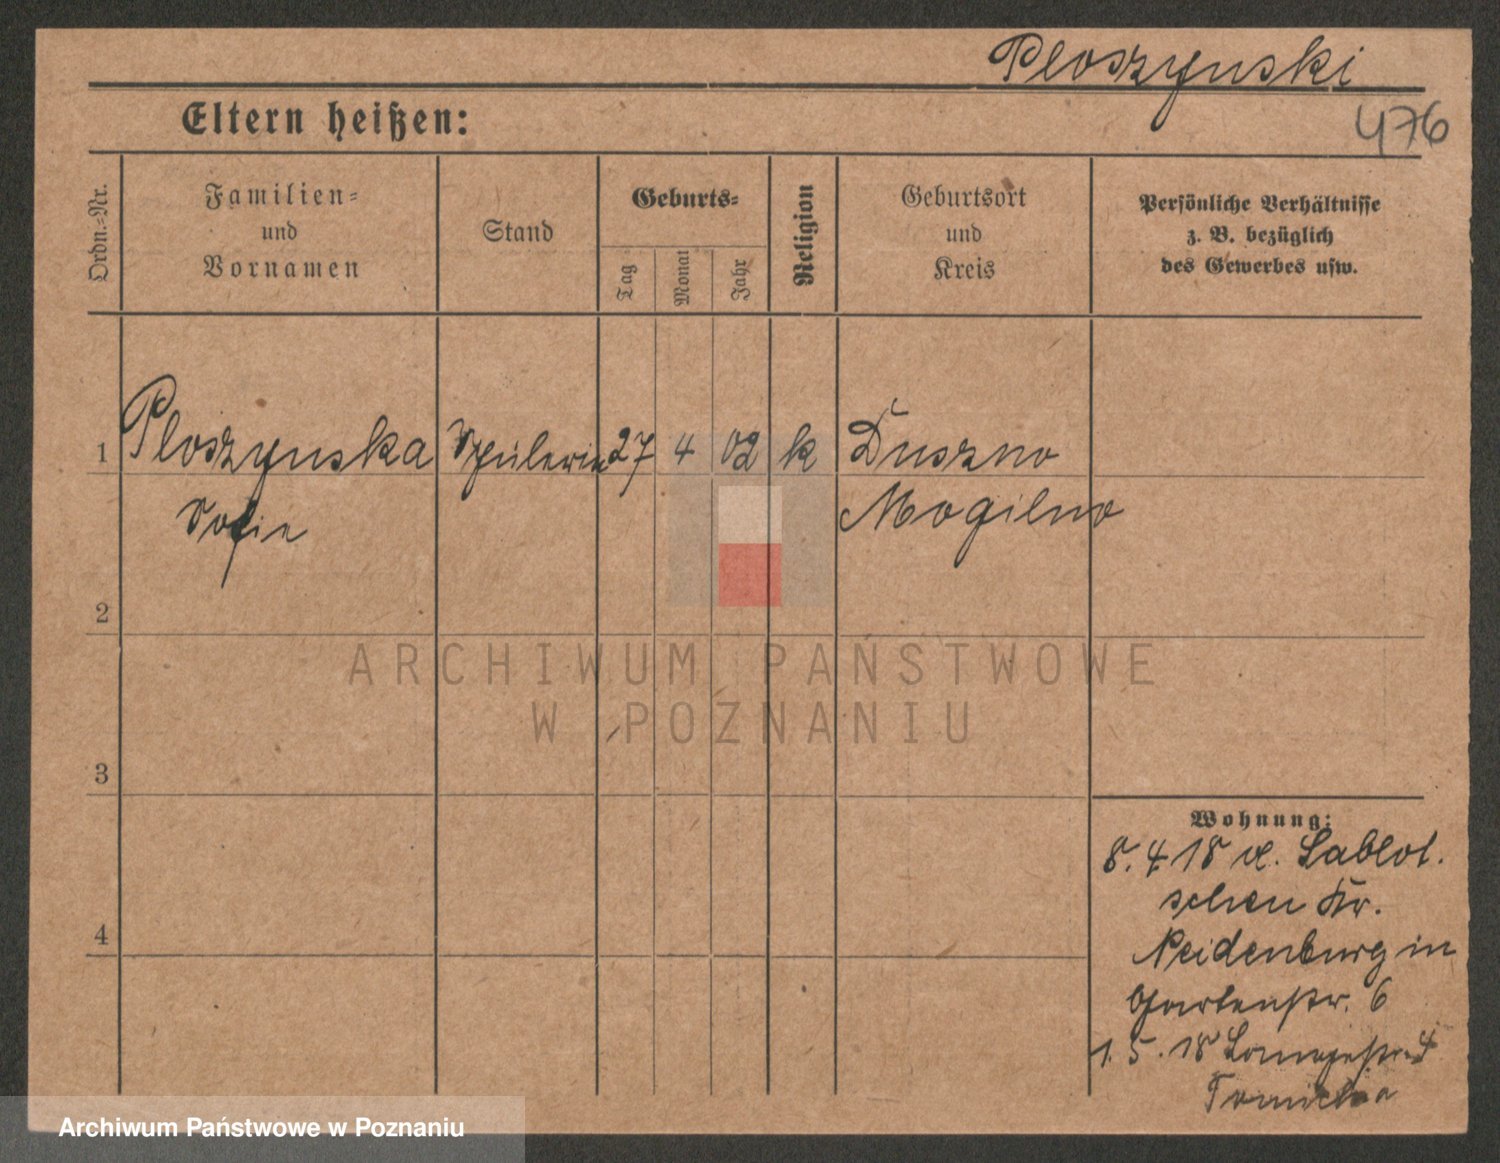 Ploszynski
476
Eltern heißen:
Ordn.-Nr.
Familien-
und
Vornamen
Stand
Geburts-
Tag
Monat
Jahr
Religion
Geburtsort
und
Kreis
Persönliche Verhältnisse
z. B. bezüglich
des Gewerbes usw.
1 Ploszynska Schülerin 27 4 02 k Duszno
Sofie Mogilno
2
3
4
Wohnung:
8. 4 18 v. Sablot.
schen Kr.
Neidenburg in
Gartenstr. 6
1. 5. 18 Langestr. 4
ARCHIWUM PAŃSTWOWE
W POZNANIU
Archiwum Państwowe w Poznaniu